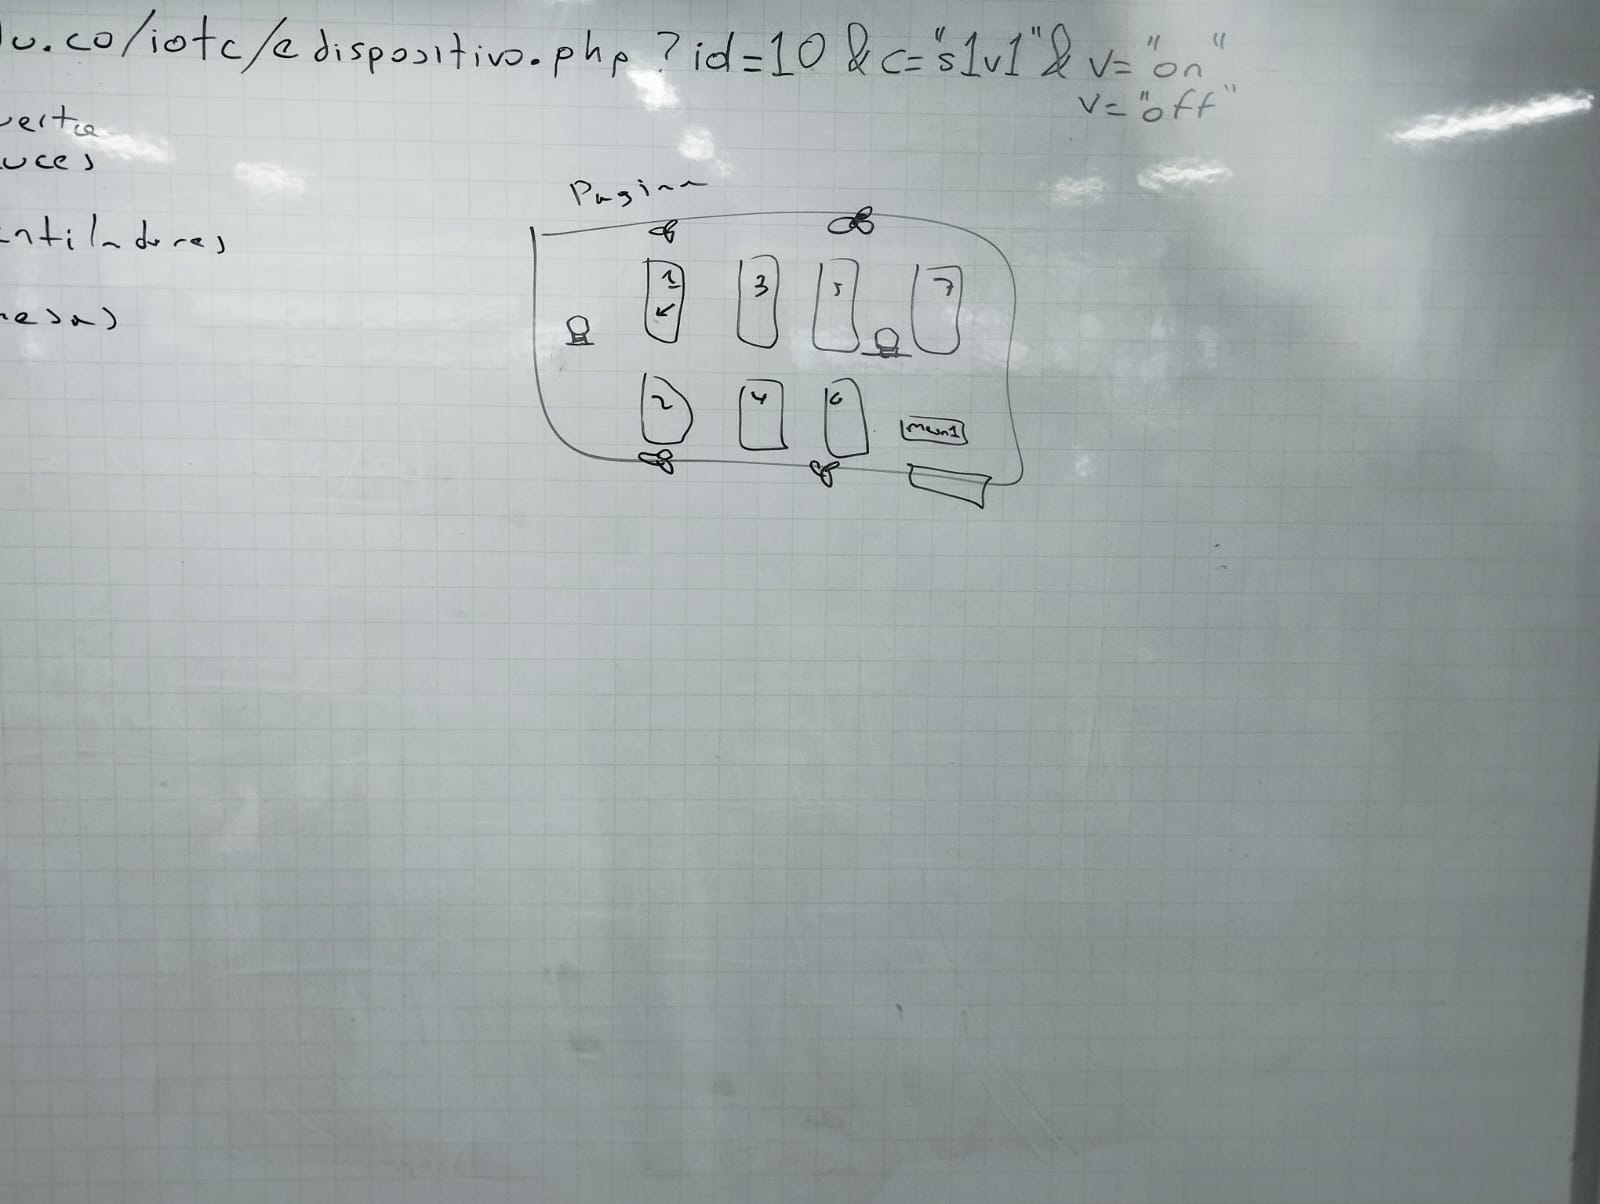 u.co/iotc/edispositivo.php?id=10&c="s1v1"&v="on"
v="off"
uerta
uces
entiladores
mesas)
Pagina
1 3 5 7
2 4 6